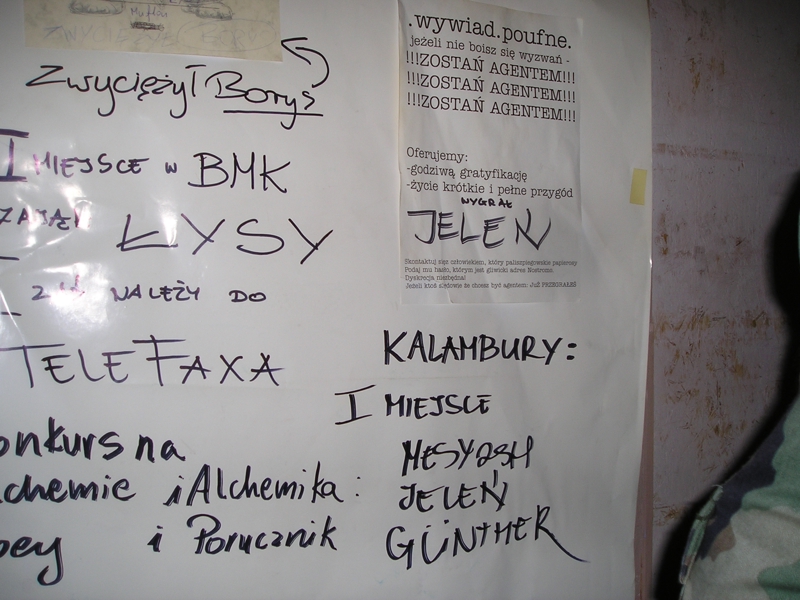 Zwyciężył Borys
I MIEJSCE W BMK
ZAJĄŁ ŁYSY
NALEŻY DO
TELEFAXA
onkurs na
chemie i Alchemika:
i Porucznik
.wywiad.poufne.
jeżeli nie boisz się wyzwań -
!!!ZOSTAŃ AGENTEM!!!
!!!ZOSTAŃ AGENTEM!!!
!!!ZOSTAŃ AGENTEM!!!
Oferujemy:
-godziwą gratyfikację
-życie krótkie i pełne przygód
WYGRAŁ
JELEŃ
człowiekiem, który pali
Podaj mu hasło, którym jest gliwicki adres Nostromo.
Dyskrecja niezbędna!
Jeżeli ktoś się dowie że chcesz być agentem: JUŻ PRZEGRAŁEŚ
KALAMBURY:
I MIEJSCE
JELEŃ
GÜNTHER